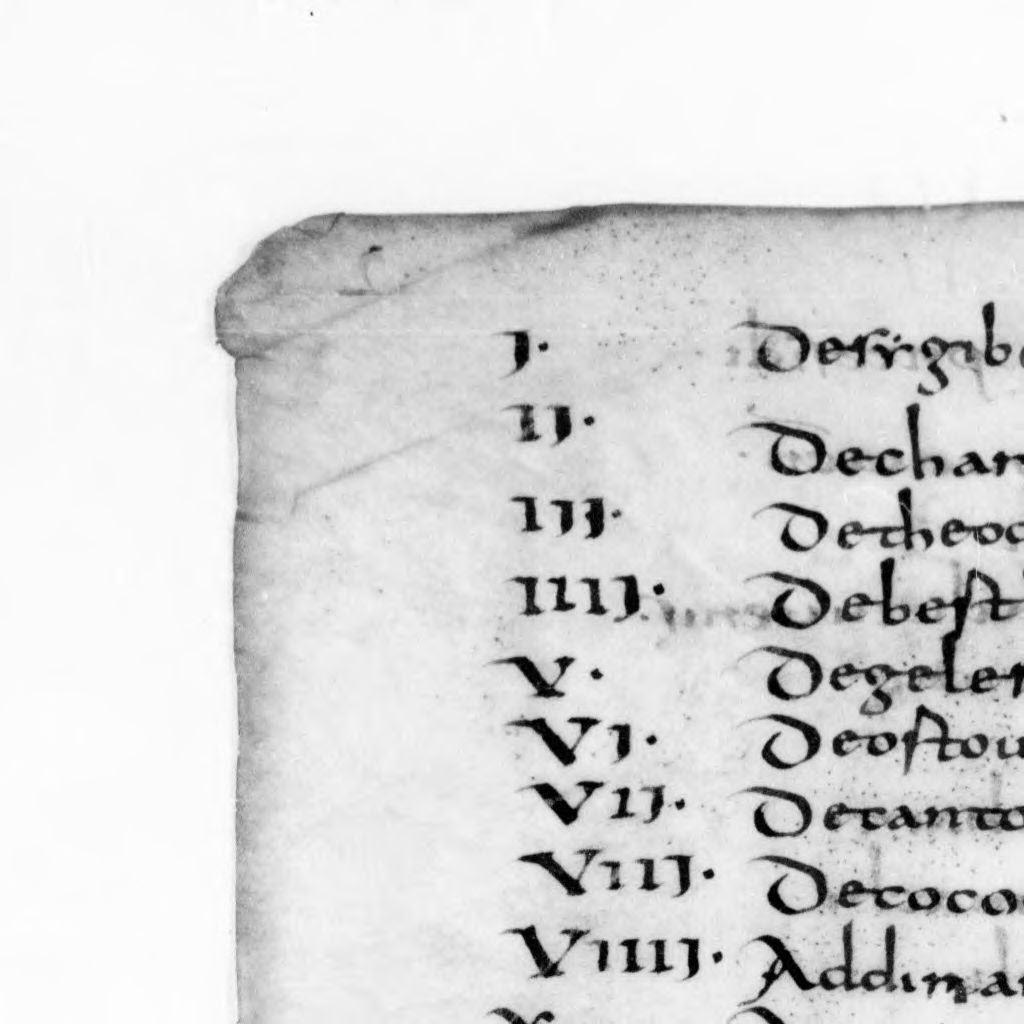 I· De sẏgib
II· De char
III· De theoc
IIII· De best
V· De geler
VI· De ostou
VII· De tanto
VIII· De toco
VIIII· Ad dinar